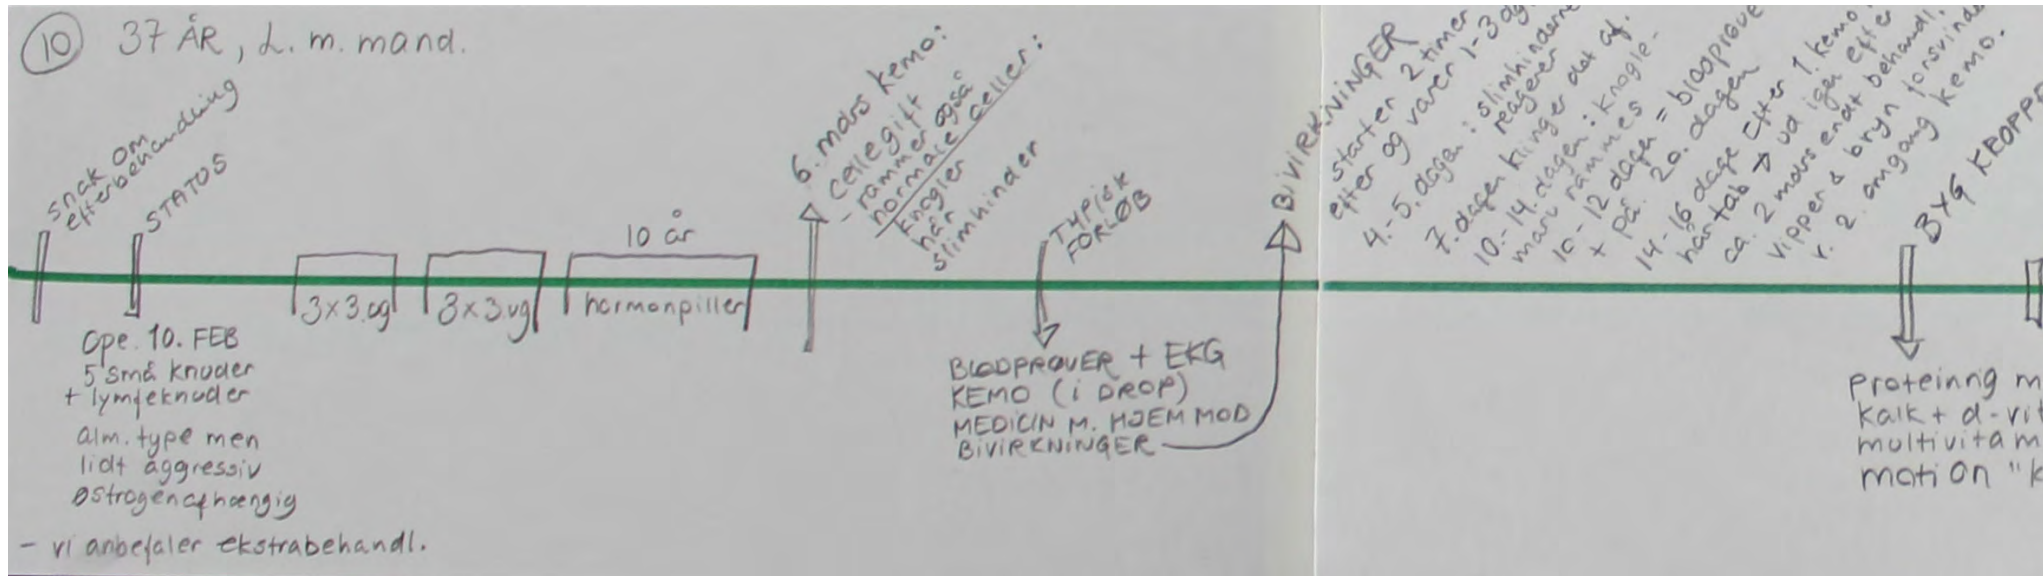 10 37 ÅR, d. m. mand.
snak om
efterbehandling
STATUS
Ope. 10. FEB
5 små knuder
+ lymfeknuder
alm. type men
lidt aggressiv
østrogenafhængig
- vi anbefaler ekstrabehandl.
3x3.ug
3x3.ug
10 år
hormonpiller
6. mdrs kemo:
cellegift
- rammer også
normale celler:
knogler
hår
slimhinder
TYPISK
FORLØB
BLODPRØVER + EKG
KEMO (i DROP)
MEDICIN M. HJEM MOD
BIVIRKNINGER
BIVIRKNINGER
starter 2 timer
efter og varer 1-3 dg
4.-5. dagen: slimhinderne
reagerer
7. dagen klinger det af.
10.-14. dagen: knogle-
marv rammes
10-12 dagen = blodprøve
+ på 20. dagen
14-16 dage efter 1. kemo
hårtab → ud igen efter
ca. 2 mdrs endt behandl.
vipper & bryn forsvinde
v. 2. omgang kemo.
3x6 KROPP
Proteinrig m
kalk + d-vit
multivitam
motion "k